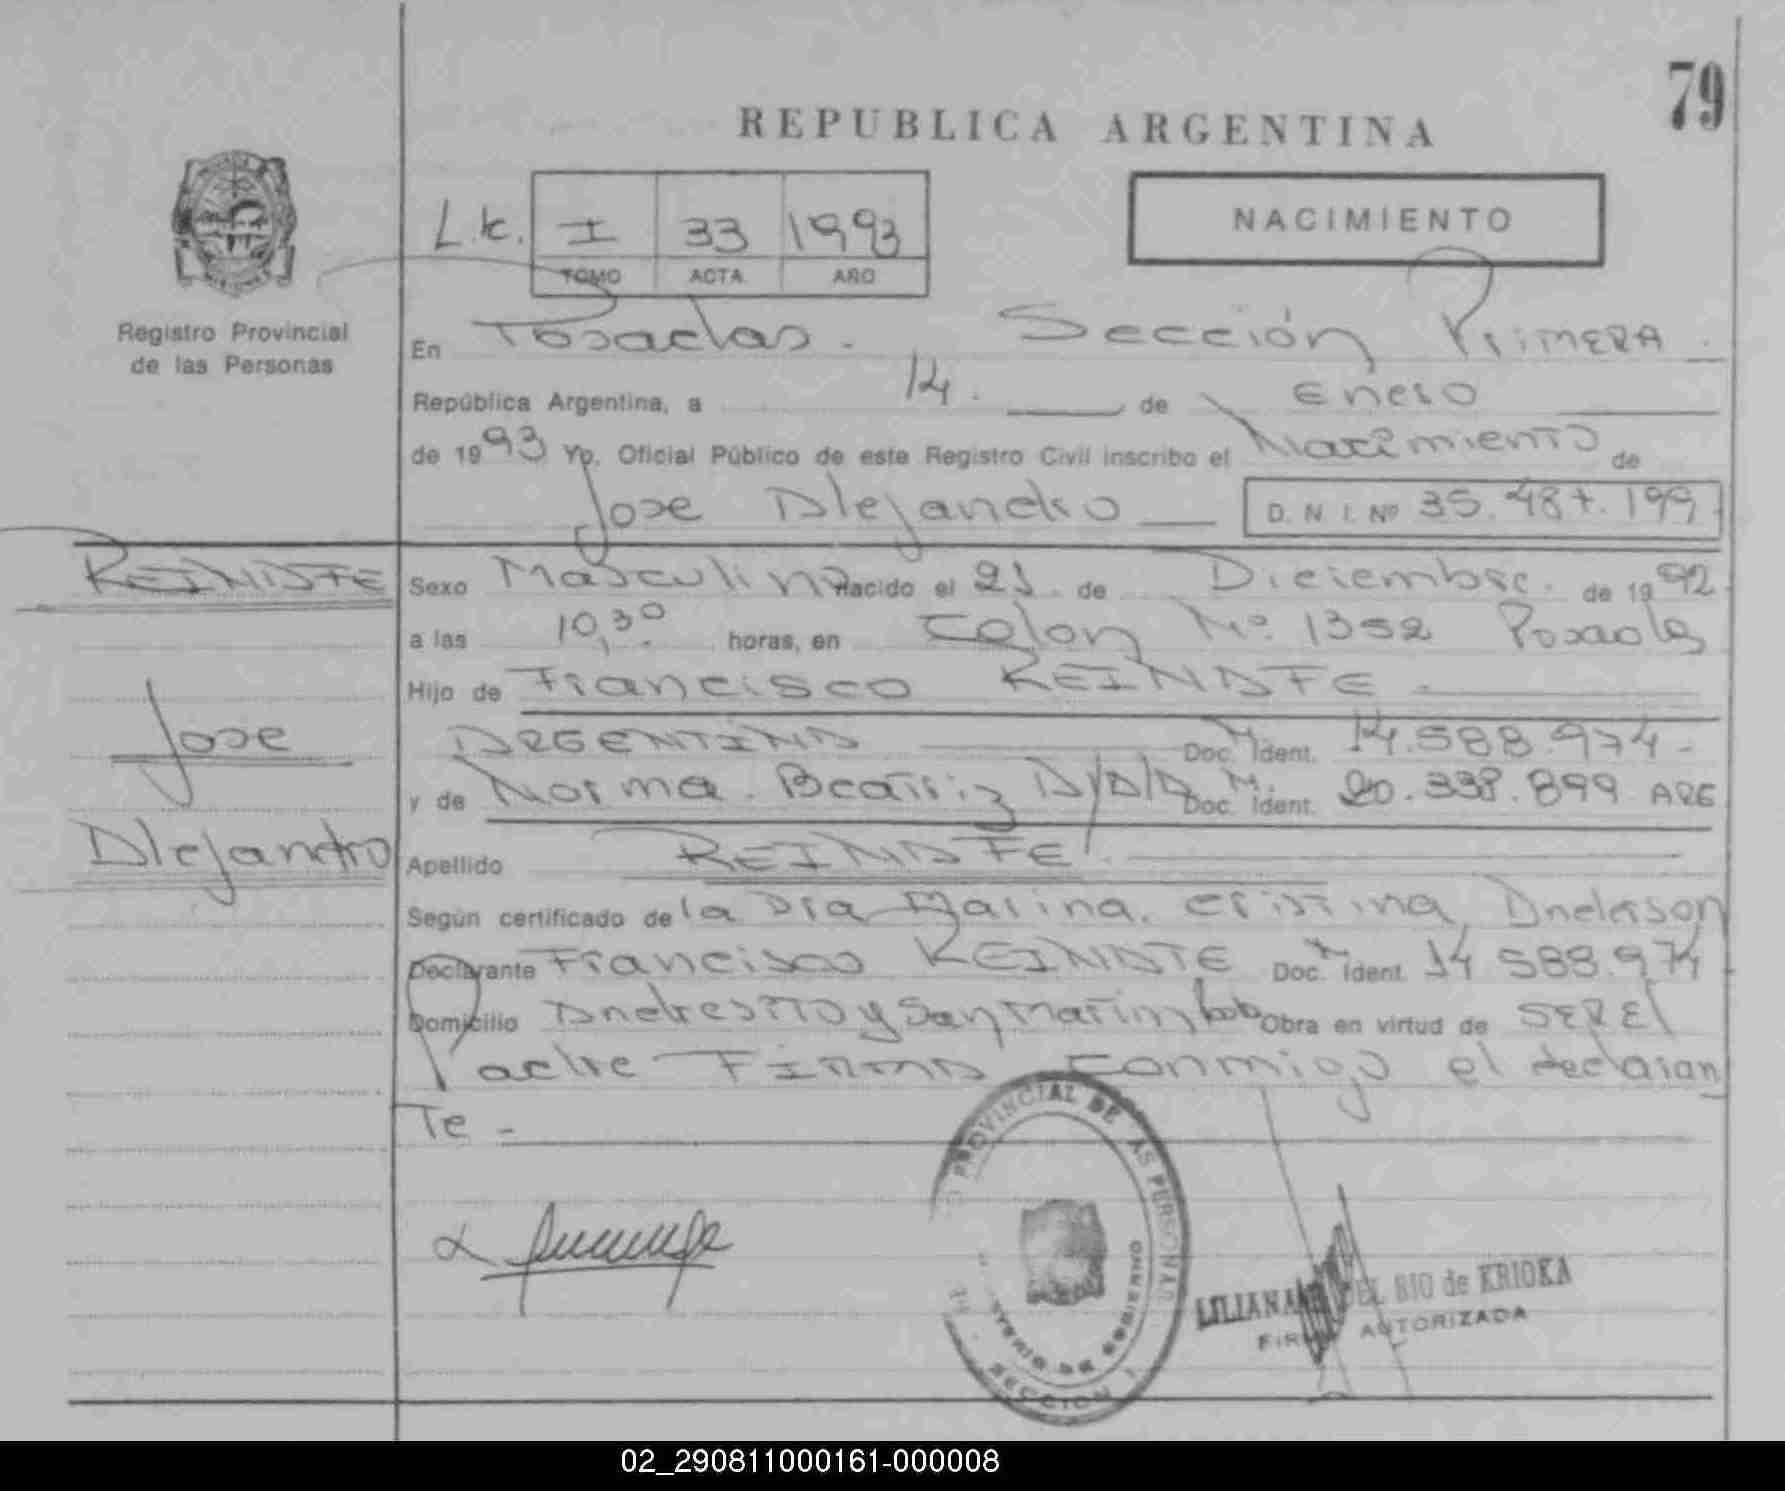 79
REPUBLICA ARGENTINA
L.C. I 33 1993
TOMO ACTA AÑO
NACIMIENTO
Registro Provincial
de las Personas
En Posadas. Sección Primera
República Argentina, a 14. de Enero
de 1993 Yo, Oficial Público de este Registro Civil inscribo el Nacimiento de
Jose Alejandro D. N. I. Nº 35.487.199
REINAFE
Jose
Alejandro
Sexo Masculino Nacido el 21 de Diciembre. de 1992
a las 10,30 horas, en Colon Nº 1352 Posadas
Hijo de Francisco REINAFE
ARGENTINA Doc. Ident. 14.588.974-
y de Norma Beatriz Doc. Ident. 20.338.899 ARG
Apellido REINAFE
Según certificado de la Dra Marina Cristina Anderson
Declarante Francisco REINAFE Doc. Ident. 14 588.974
Domicilio y San Martin Obra en virtud de SER El
Padre FIRMA conmigo el declaran
Te -
PROVINCIAL DE LAS PERSONAS
MINISTERIO DE GOBIERNO
SECCION 1
LILIANA DEL RIO de KRIOKA
FIRMA AUTORIZADA
02_290811000161-000008